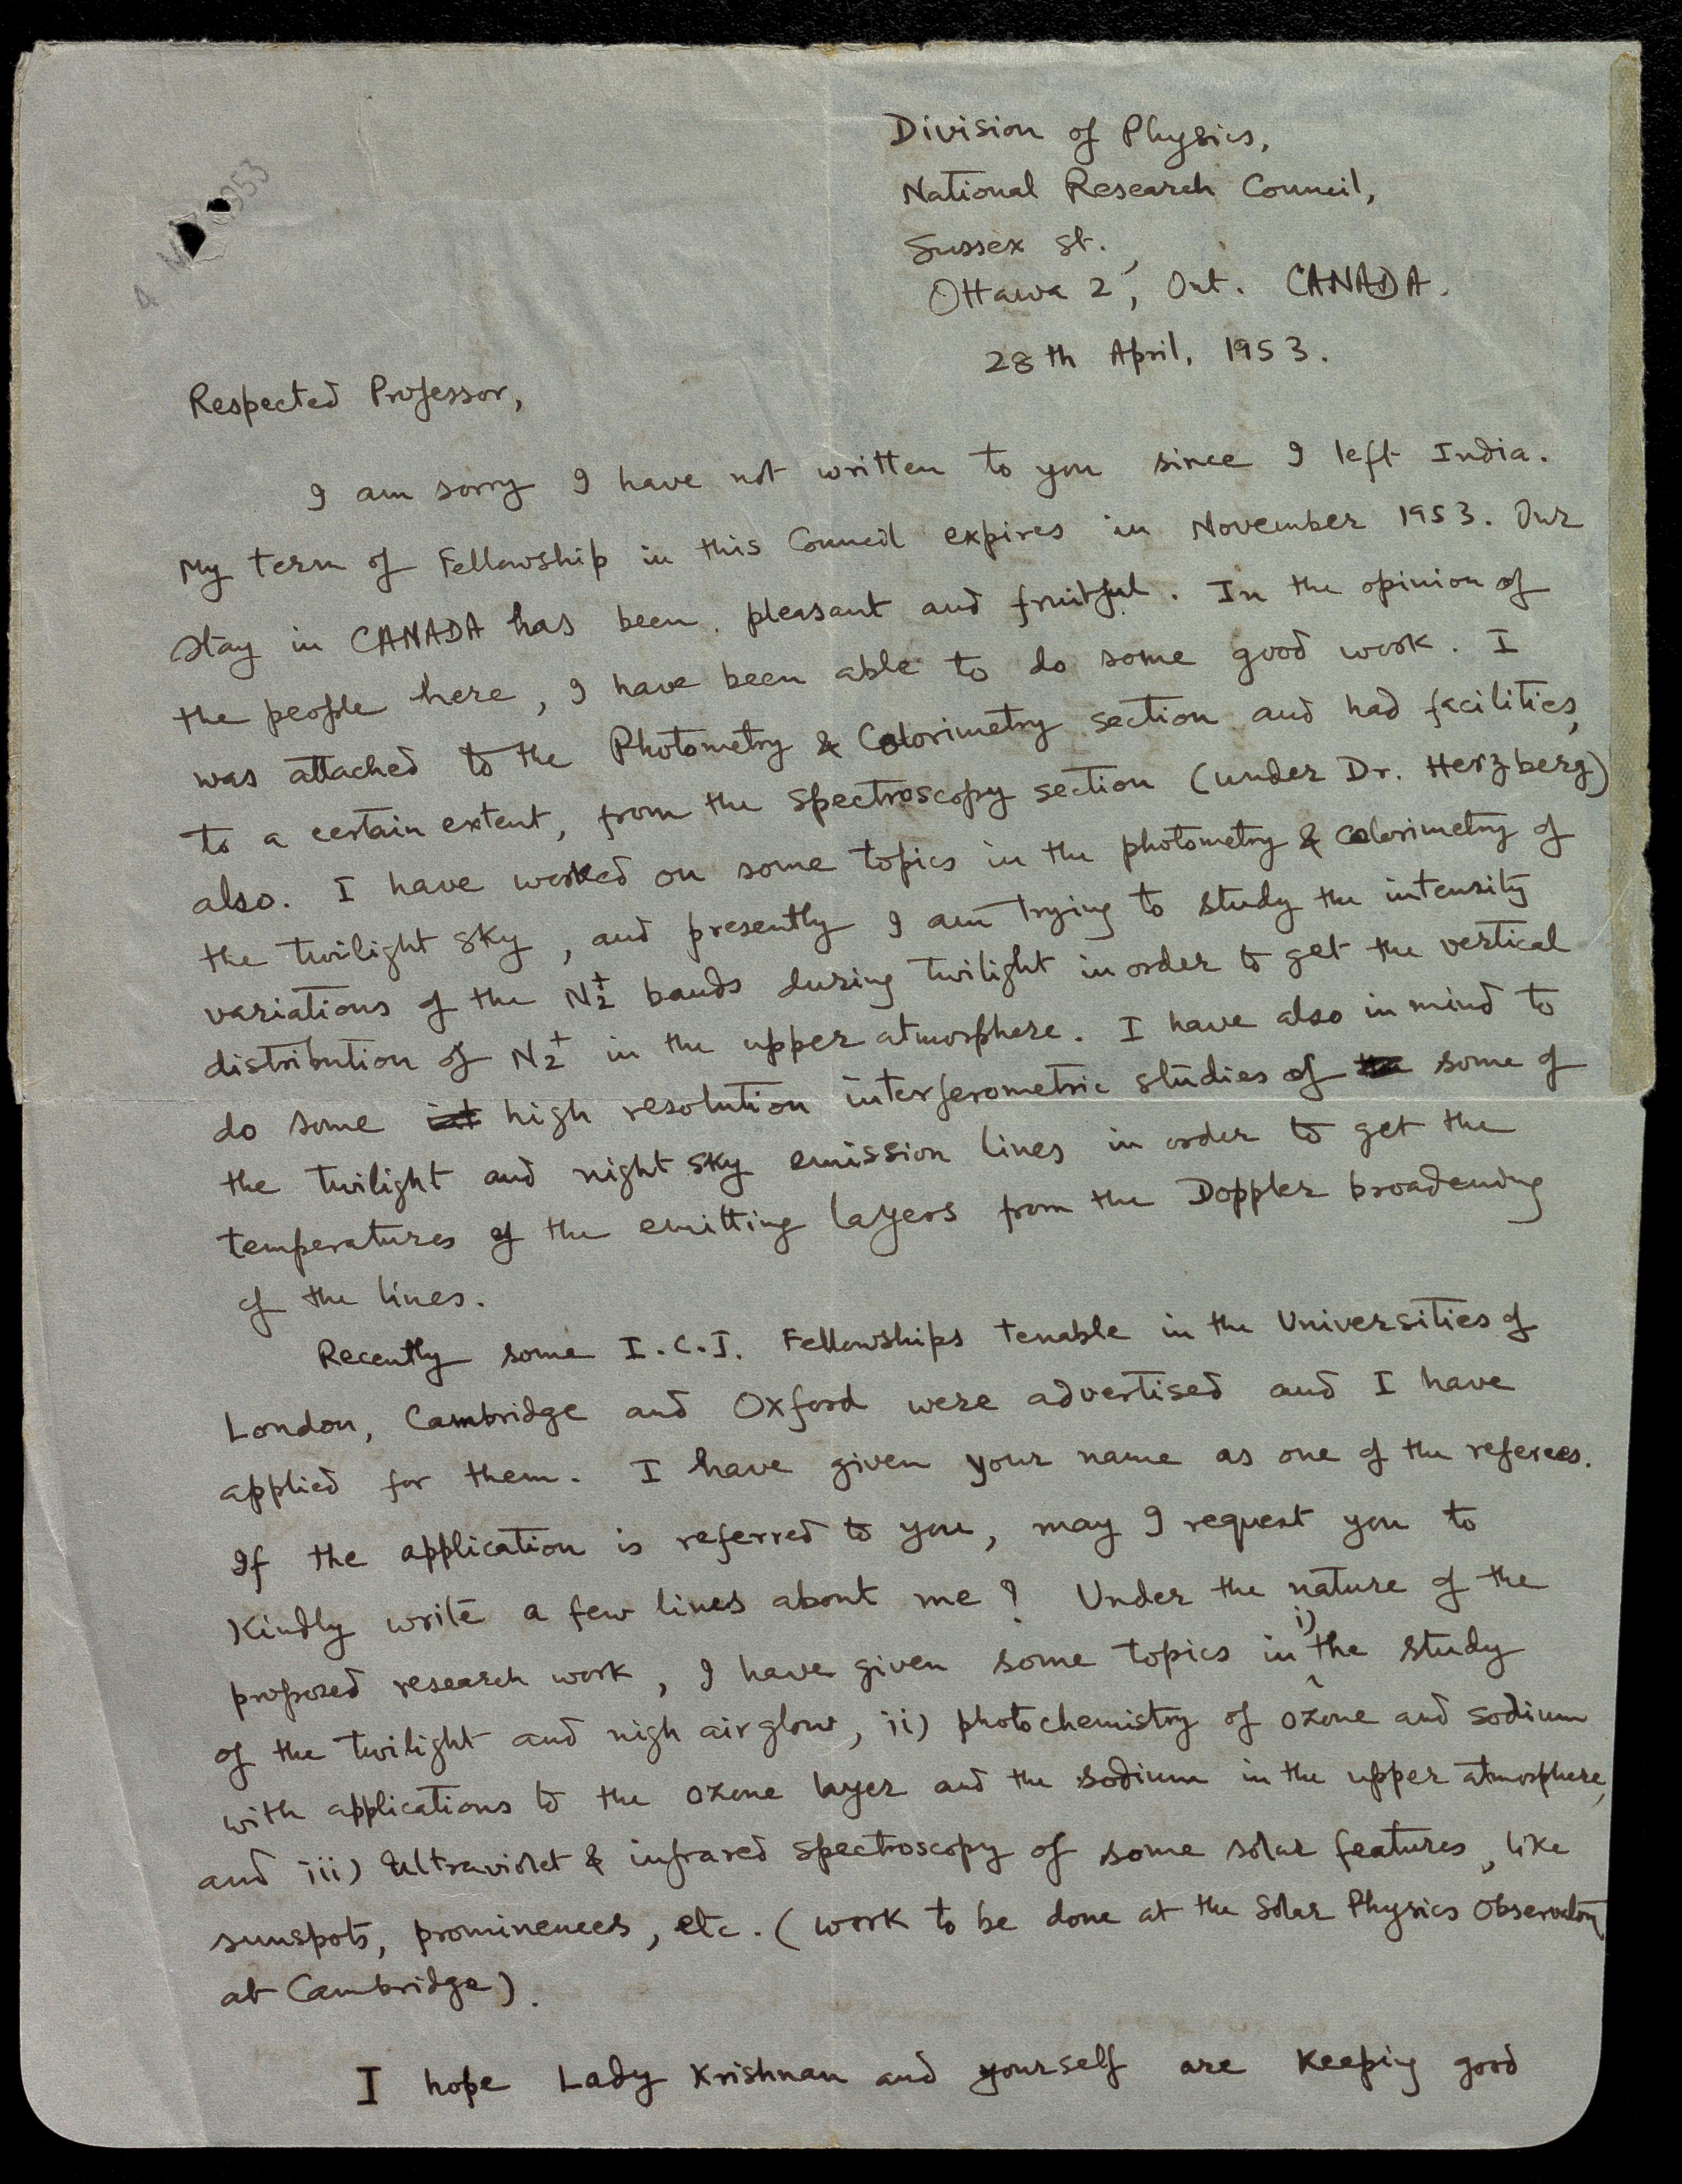 4 MAY 1953
Division of Physics,
National Research Council,
Sussex St.,
Ottawa 2, Ont. CANADA.
28th April, 1953.
Respected Professor,
I am sorry I have not written to you since I left India.
My term of Fellowship in this Council expires in November 1953. Our
stay in CANADA has been pleasant and fruitful. In the opinion of
the people here, I have been able to do some good work. I
was attached to the Photometry & Colorimetry section and had facilities,
to a certain extent, from the spectroscopy section (under Dr. Herzberg)
also. I have worked on some topics in the photometry & colorimetry of
the twilight sky, and presently I am trying to study the intensity
variations of the N₂⁺ bands during twilight in order to get the vertical
distribution of N₂⁺ in the upper atmosphere. I have also in mind to
do some high resolution interferometric studies of some of
the twilight and night sky emission lines in order to get the
temperatures of the emitting layers from the Doppler broadening
of the lines.
Recently some I.C.I. Fellowships tenable in the Universities of
London, Cambridge and Oxford were advertised and I have
applied for them. I have given your name as one of the referees.
If the application is referred to you, may I request you to
kindly write a few lines about me? Under the nature of the
proposed research work, I have given some topics in i) the study
of the twilight and nigh airglow, ii) photochemistry of ozone and sodium
with applications to the ozone layer and the sodium in the upper atmosphere,
and iii) Ultraviolet & infrared spectroscopy of some solar features, like
sunspots, prominences, etc. (work to be done at the Solar Physics Observatory
at Cambridge).
I hope Lady Krishnan and yourself are keeping good